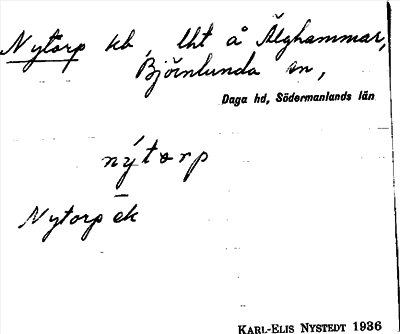 Nytorp kb, lht å Älghammar,
Björnlunda sn,
Daga hd, Södermanlands län
nýtorp
Nytorp ek
KARL-ELIS NYSTEDT 1936